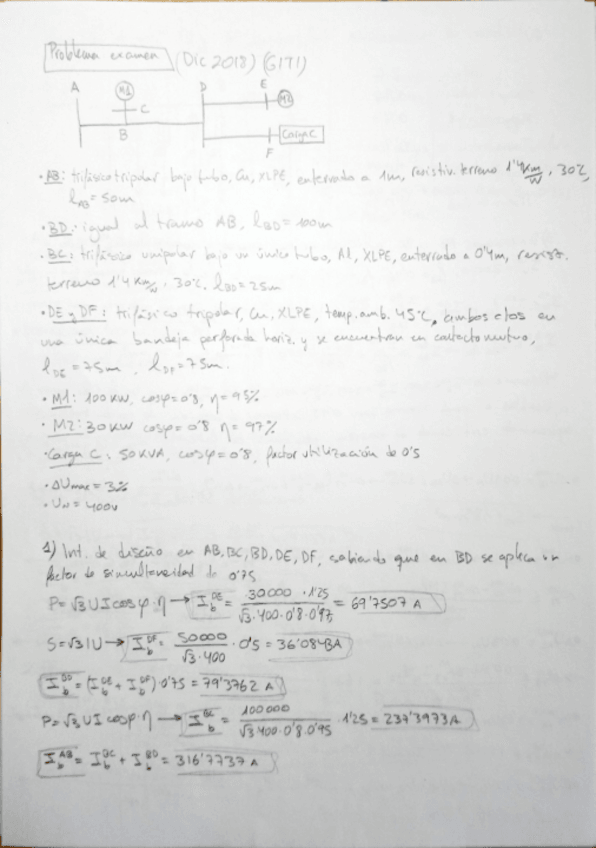 Problema examen (Dic 2018) (GITI)
A M1 C B D E M2 Carga C F
· AB: trifásico tripolar bajo tubo, Cu, XLPE, enterrado a 1m, resistiv. terreno 1'4 Km/W, 30℃,
l_AB = 50m
· BD: igual al tramo AB, l_BD = 100m
· BC: trifásico unipolar bajo un único tubo, Al, XLPE, enterrado a 0'4m, resist.
terreno 1'4 Km/W, 30℃. l_BD = 25m
· DE y DF: trifásico tripolar, Cu, XLPE, temp. amb. 45℃, ambos ctos en
una única bandeja perforada horiz. y se encuentran en contacto mutuo,
l_DE = 75m, l_DF = 75m.
· M1: 100 KW, cosφ = 0'8, η = 95%
· M2: 30 KW cosφ = 0'8 η = 97%
· Carga C: 50 KVA, cosφ = 0'8, factor utilización de 0'5
· ΔUmax = 3%
· U_N = 400v
1) Int. de diseño en AB, BC, BD, DE, DF, sabiendo que en BD se aplica un
factor de simultaneidad de 0'75
P = √3 U I cosφ · η → I_b^DE = 30000 · 1'25 / √3 · 400 · 0'8 · 0'97 = 69'7507 A
S = √3 I U → I_b^DF = 50000 / √3 · 400 · 0'5 = 36'0843A
I_b^BD = (I_b^DE + I_b^DF) · 0'75 = 79'3762 A
P = √3 U I cosφ · η → I_b^BC = 100000 / √3 · 400 · 0'8 · 0'95 · 1'25 = 237'3973A
I_b^AB = I_b^BC + I_b^BD = 316'7737 A